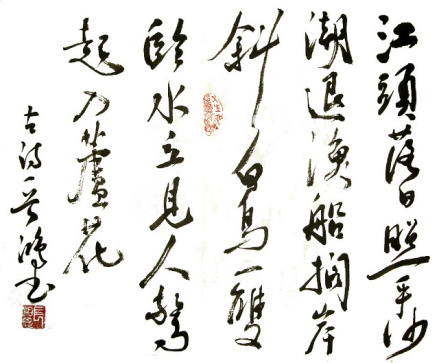 江頭落日照平沙
潮退漁船擱岸
斜白鳥一雙
臨水立見人驚
起入蘆花
古詩一首鴻書